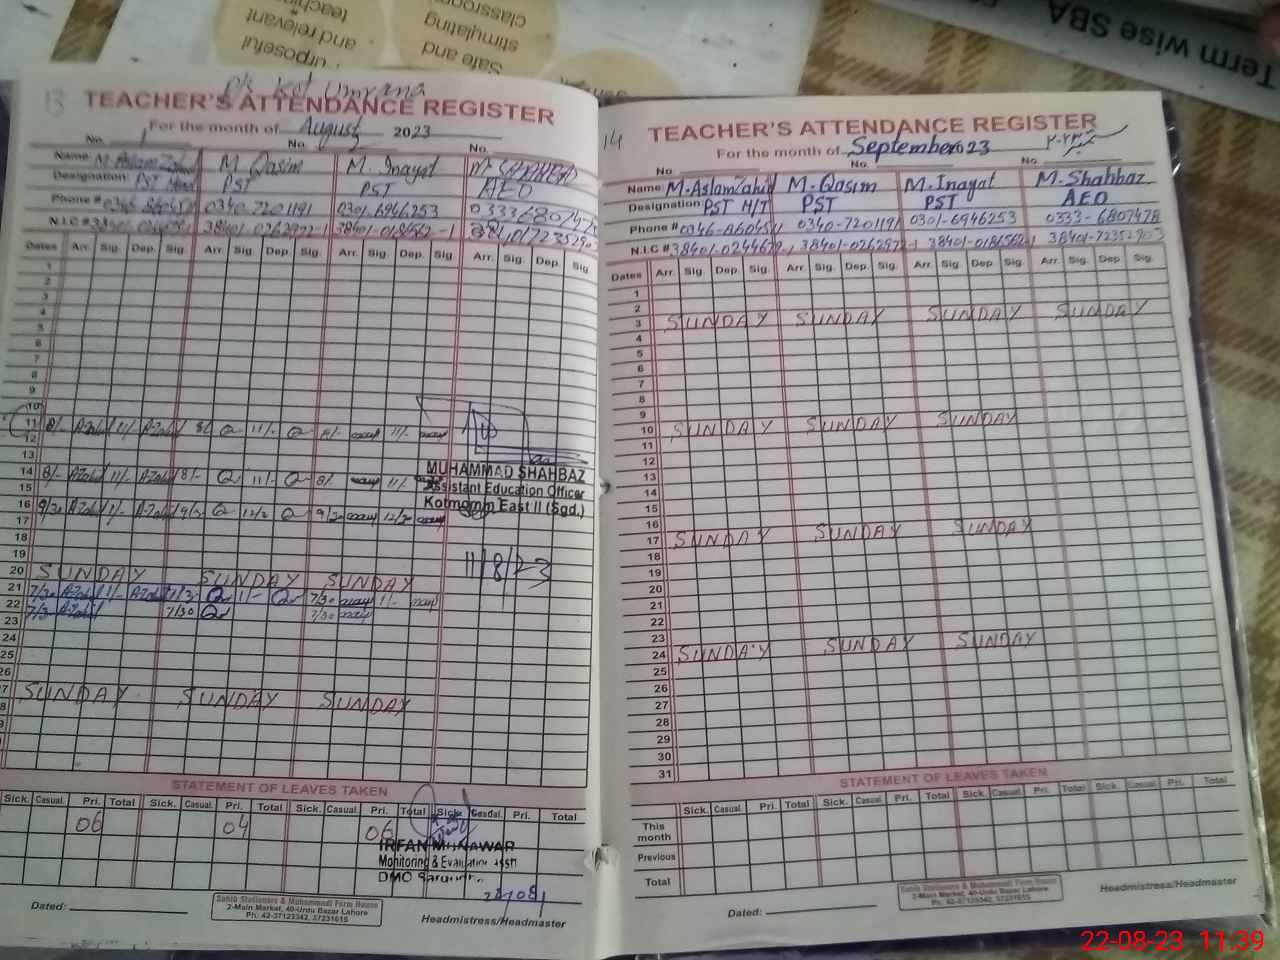 Term wise SBA
urposeful
and relevant
teaching
Safe and
stimulating
classroom
13
P/s Kot Umrana
TEACHER'S ATTENDANCE REGISTER
For the month of August 2023
No. 1 No. No.
Name: M. Aslam Zahid M. Qasim M. Inayat M. SHAHBAZ
Designation: PST Head PST PST AEO
Phone # 0340-7201191 0301-6946253
N.I.C # 38401-0262972-1 38401-0186562-1
Dates Arr. Sig. Dep. Sig. Arr. Sig. Dep. Sig. Arr. Sig. Dep. Sig. Arr. Sig. Dep. Sig.
1
2
3
4
5
6
7
8
9
10
11 8/- AZahid 11/- AZahid 8/- 11/- 8/- 11/-
12
13
MUHAMMAD SHAHBAZ
14 8/- AZahid 11/- AZahid 8/- 11/- 8/- 11/-
Assistant Education Officer
15
Kotmomin East II (Sgd.)
16 9/30 AZahid 1/- AZahid
17
18
19
11/8/23
20 SUNDAY SUNDAY SUNDAY
21 7/30 AZahid 1/- AZahid 7/30 1/- 7/30 1/-
22 7/30 AZahid 7/30 7/30
23
24
25
26
27 SUNDAY SUNDAY SUNDAY
28
STATEMENT OF LEAVES TAKEN
Sick. Casual. Pri. Total Sick. Casual. Pri. Total Sick. Casual. Pri. Total Sick. Casual. Pri. Total
06 04 06
IRFAN MUNAWAR
Monitoring & Evaluation Asstt
DMO Sargodha
Dated:
Sahib Stationers & Muhammadi Form House
2-Main Market, 40-Urdu Bazar Lahore
Ph: 42-37123342, 37231615
Headmistress/Headmaster
14
TEACHER'S ATTENDANCE REGISTER
For the month of September 2023
No No. No.
Name M. Aslam Zahid M. Qasim M. Inayat M. Shahbaz
Designation PST H/T PST PST AEO
Phone # 0346-8604511 0340-7201191 0301-6946253 0333-6807478
N.I.C # 38401-0262972-1 38401-0186562-1 38401-72352903
Dates Arr. Sig. Dep. Sig. Arr. Sig. Dep. Sig. Arr. Sig. Dep. Sig. Arr. Sig. Dep. Sig.
1
2
3 SUNDAY SUNDAY SUNDAY SUNDAY
4
5
6
7
8
9
10 SUNDAY SUNDAY SUNDAY
11
12
13
14
15
16
17 SUNDAY SUNDAY SUNDAY
18
19
20
21
22
23
24 SUNDAY SUNDAY SUNDAY
25
26
27
28
29
30
31
STATEMENT OF LEAVES TAKEN
Sick. Casual. Pri. Total Sick. Casual. Pri. Total Sick. Casual. Pri. Total Sick. Casual. Pri. Total
This month
Previous
Total
Dated:
Sahib Stationers & Muhammadi Form House
2-Main Market, 40-Urdu Bazar Lahore
Ph: 42-37123342, 37231615
Headmistress/Headmaster
22-08-23 11:39